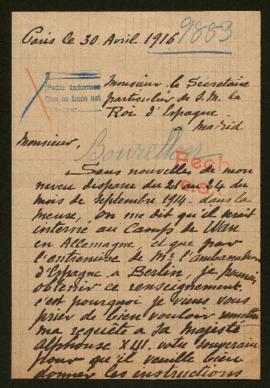 Paris le 30 Avril 1916
9883
Monsieur le Secretaire
particulier de S. M. Le
Roi d'Espagne
Madrid
Monsieur,
Sans nouvelles de mon
neveu disparu du 21 au 24 du
mois de Septembre 1914. dans la
Meuse, on me dit qu'il serait
interné au Camp de
en Allemagne, et que par
l'entremise de Mr l'Ambassadeur
d'Espagne a Berlin, je pourrais
obtenir ce renseignement
c'est pourquoi je viens vous
prier de bien vouloir
ma requête a sa Majesté
Alphonse XIII, votre Souverain
pour qu'il veuille bien
donner les instructions